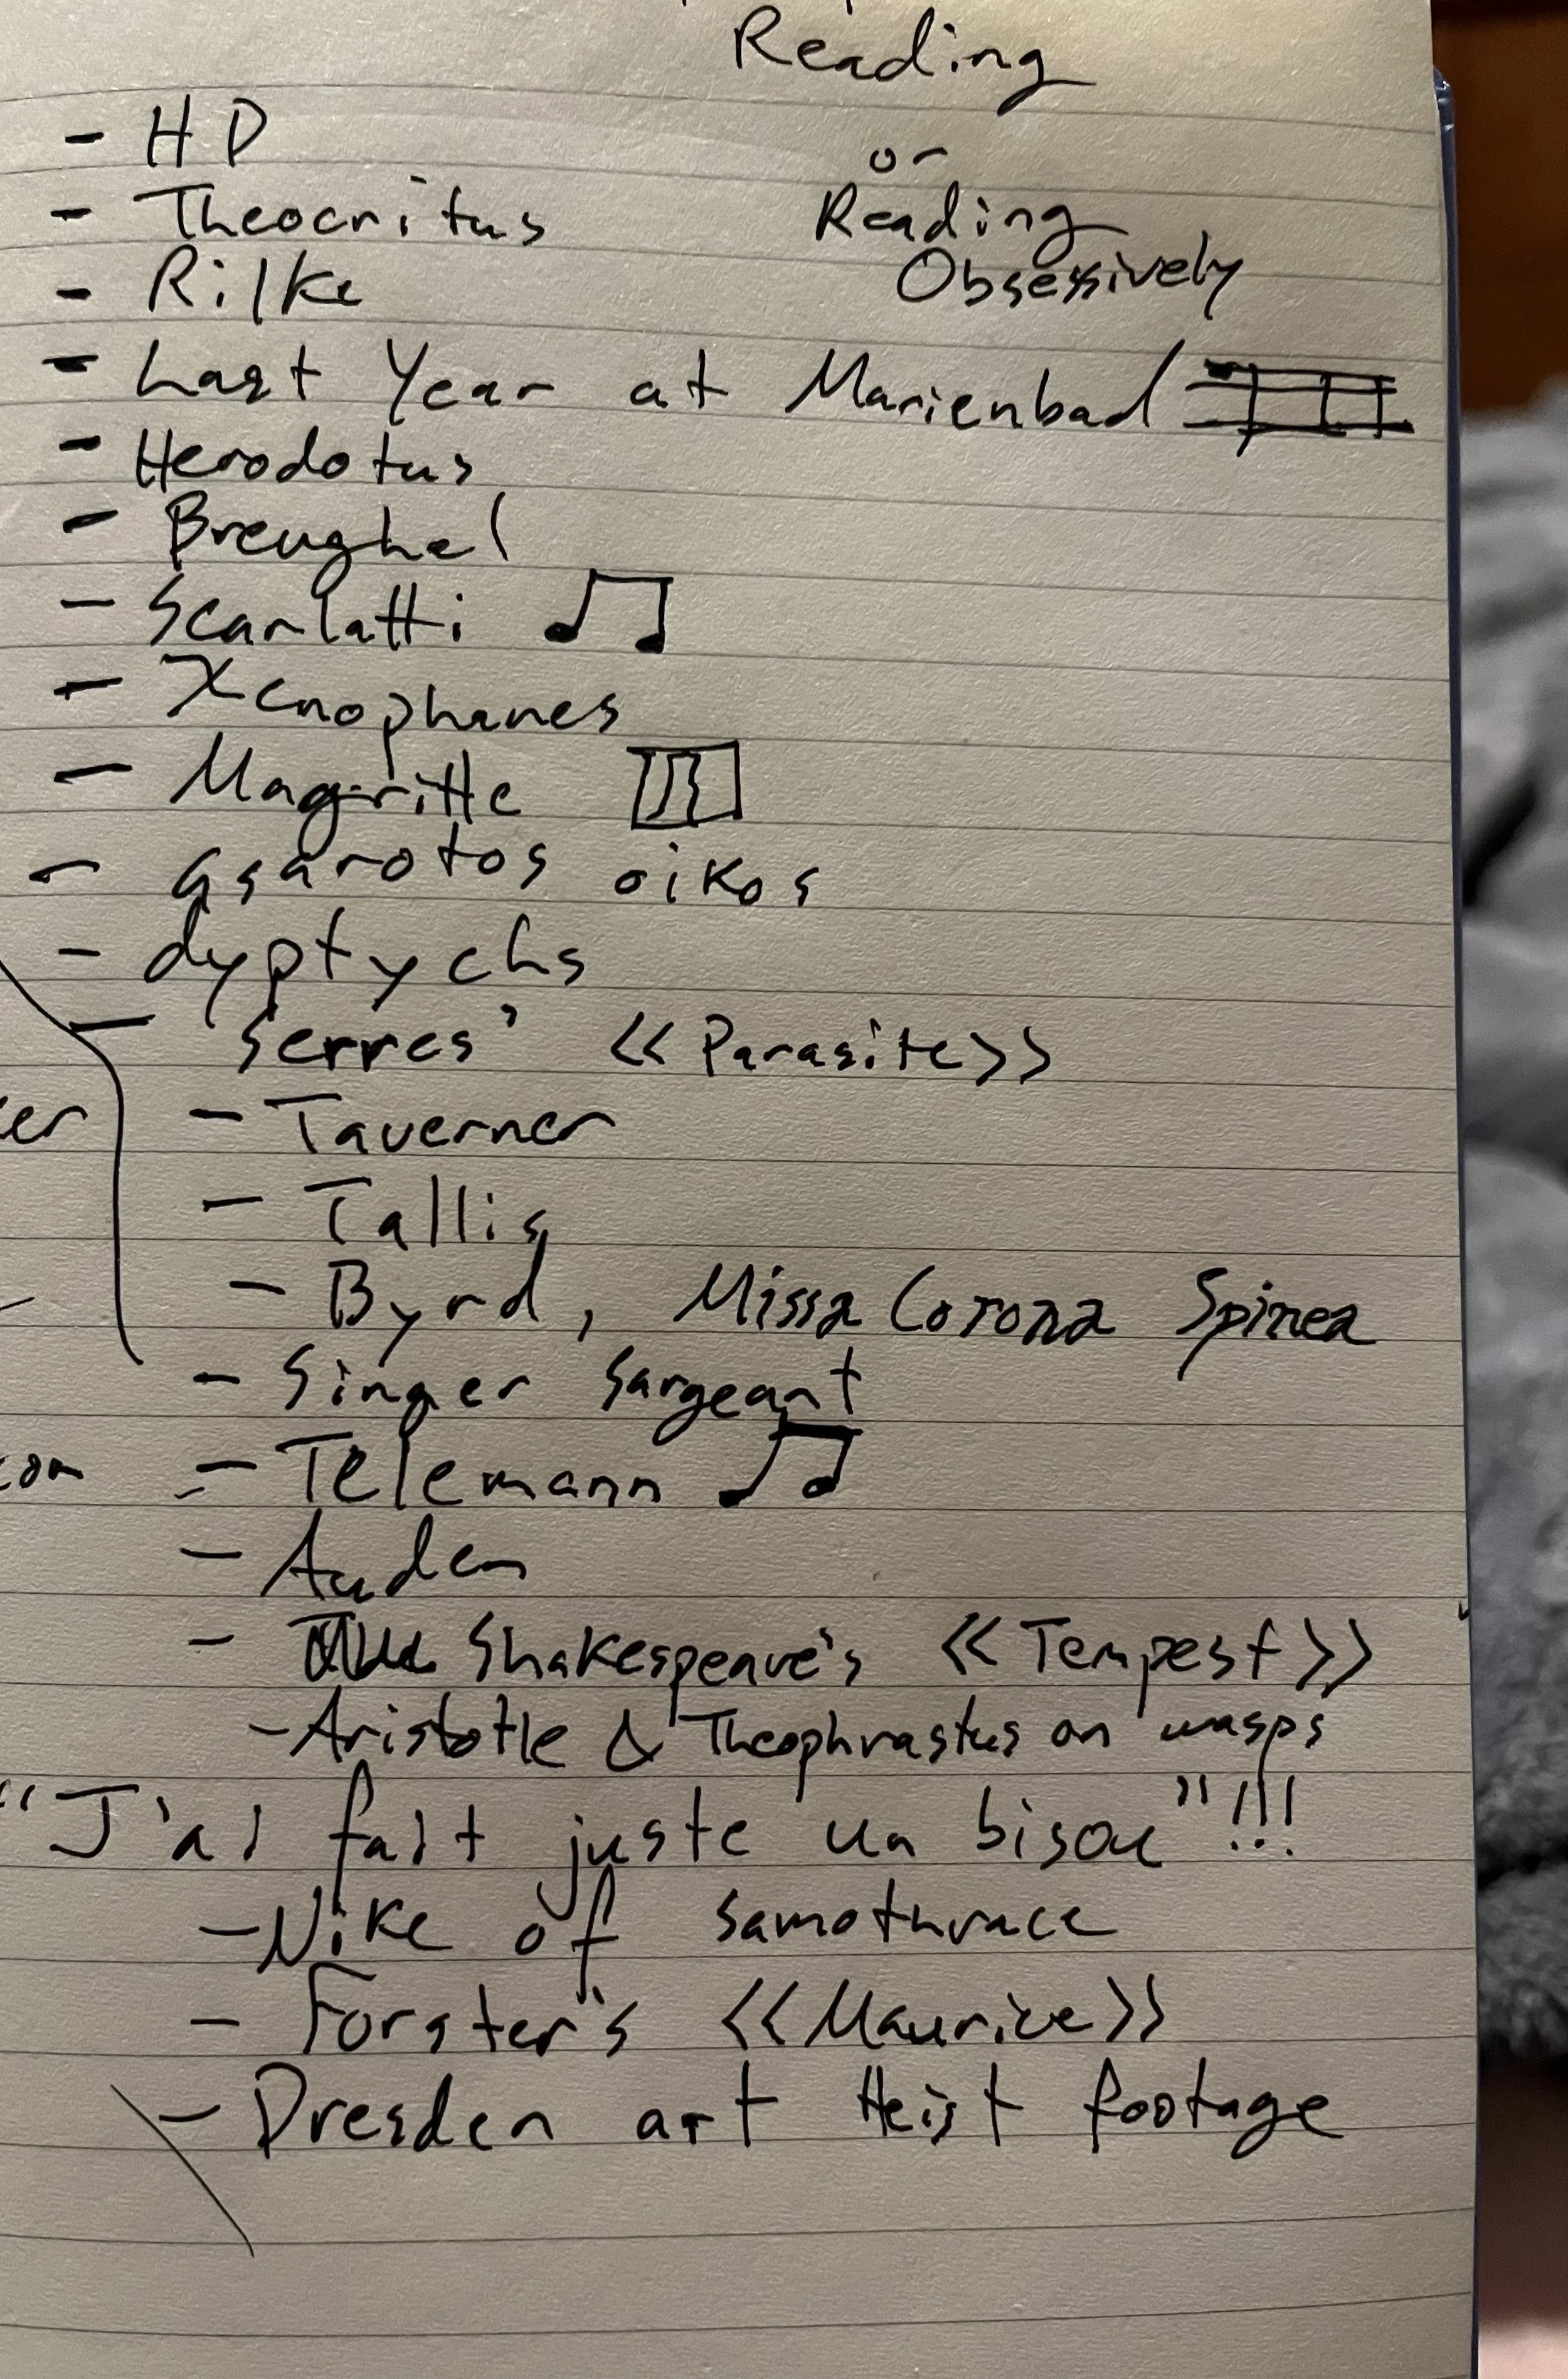 Reading
- HD
or
- Theocritus
Reading
Obsessively
- Rilke
- Last Year at Marienbad
- Herodotus
- Breughel
- Scarlatti ♫
- Xenophanes
- Magritte
- asarotos oikos
- dyptychs
- Serres' << Parasite>>
er
- Taverner
- Tallis
- Byrd, Missa Corona Spinea
- Singer Sargeant
- Telemann ♫
- Auden
- Shakespeare's << Tempest>>
- Aristotle & Theophrastus on wasps
"J'ai fait juste un bisou"!!!
- Nike of Samothrace
- Forster's <<Maurice>>
- Dresden art Heist footage